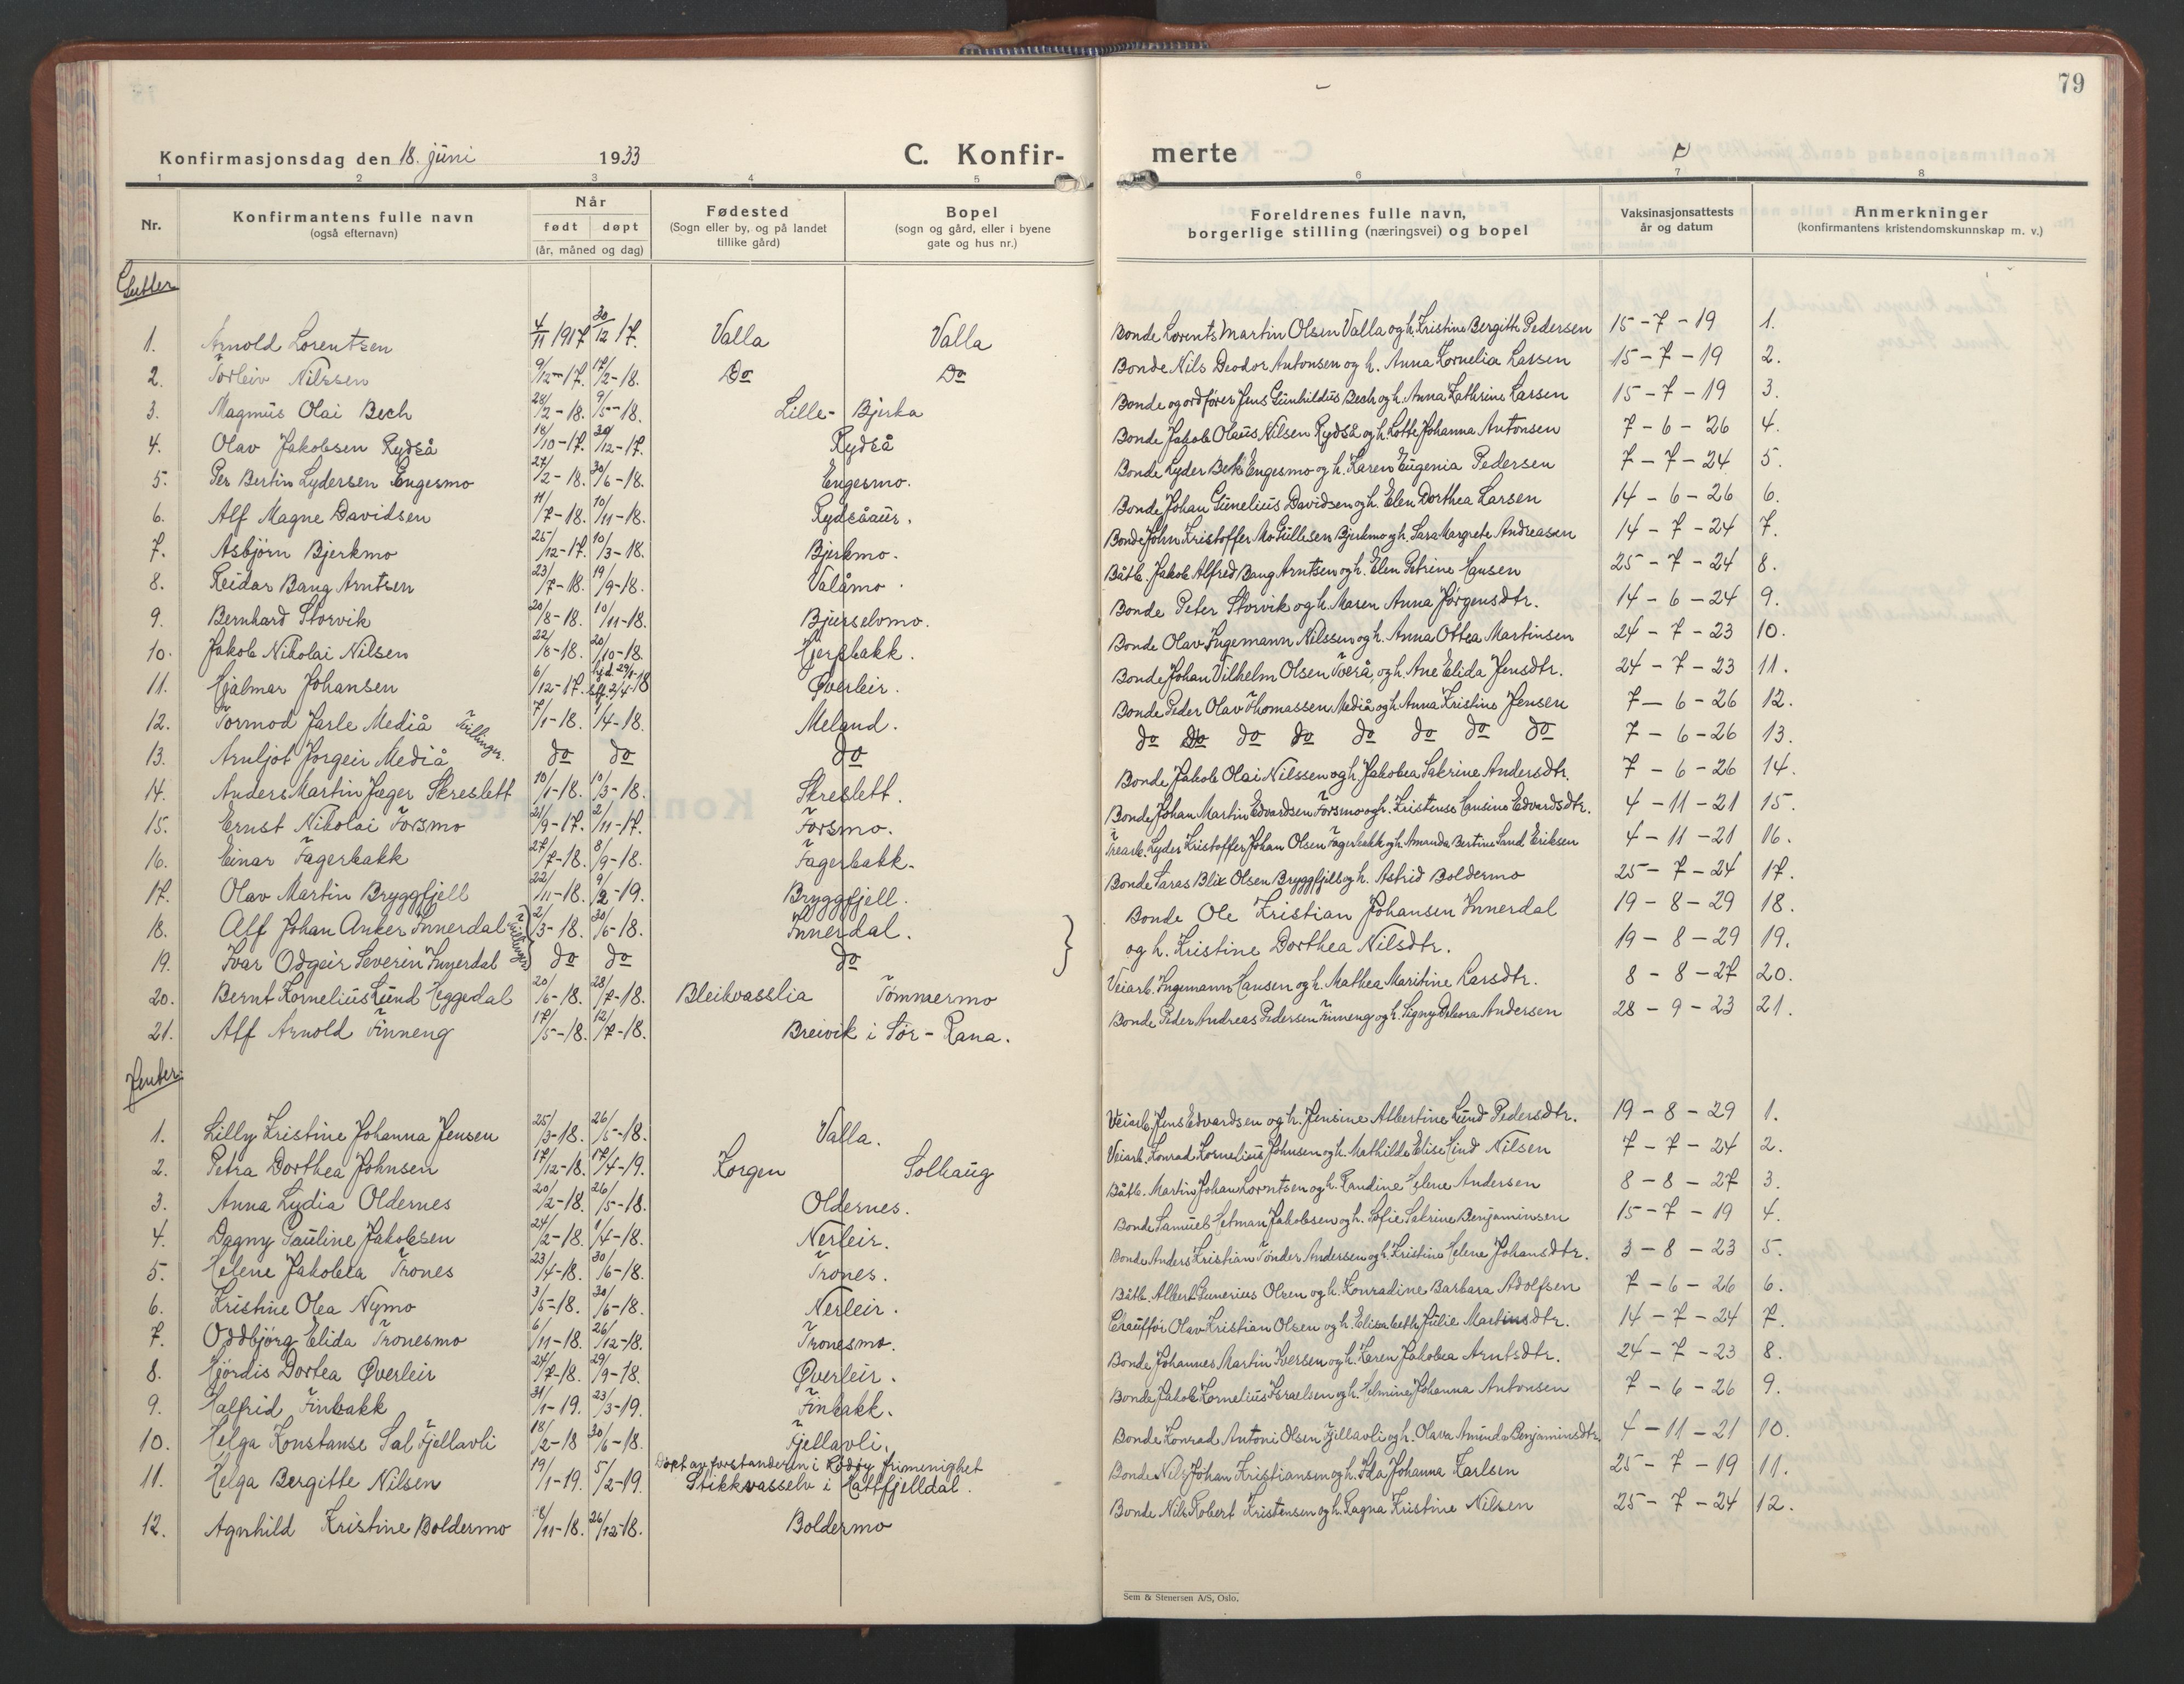 79
Konfirmasjonsdag den 18. juni 1933 C. Konfir- merte
1 2 3 4 5 6 7 8
Nr. Konfirmantens fulle navn (også efternavn) Når født døpt (år, måned og dag) Fødested (Sogn eller by, og på landet tillike gård) Bopel (sogn og gård, eller i byene gate og hus nr.) Foreldrenes fulle navn, borgerlige stilling (næringsvei) og bopel Vaksinasjonsattests år og datum Anmerkninger (konfirmantens kristendomskunnskap m. v.)
Gutter
1. Arnold Lorentsen 4/11 1917 30/12 17. Valla Valla Bonde Lorents Martin Olsen Valla og h. Kristine Bergitte Pedersen 15-7-19 1.
2. Torleiv Nilssen 9/12-17. 17/2-18. Do Do Bonde Nils Deodor Antonsen og h. Anna Kornelia Lassen 15-7-19 2.
3. Magnus Olai Bech 28/2-18. 9/5-18. Lille-Bjerka Bonde og ordfører Jens Gunhildus Bech og h. Anna Kathrine Larsen 15-7-19 3.
4. Olav Jakobsen Rydså 18/10-17. 30/12-17. Rydså Bonde Jakob Olaus Nilsen Rydså og h. Lotte Johanna Antonsen 7-6-26 4.
5. Per Bertin Lydersen Engesmo 27/2-18. 30/6-18. Engesmo. Bonde Lyder Bek Engesmo og h. Karen Eugenia Pedersen 7-7-24 5.
6. Alf Magne Davidsen 11/7-18. 10/11-18. Rydsåaur. Bonde Johan Gunelius Davidsen og h. Elen Dorthea Larsen 14-6-26 6.
7. Asbjörn Bjerkmo 25/12-17. 10/3-18. Bjerkmo. Bonde John Kristoffer Mo Gullesen Bjerkmo og h. Sara Margrete Andreasen 14-7-24 7.
8. Reidar Bang Arntsen 23/7-18. 19/9-18. Valåmo. Båtb. Jakob Alfred Bang Arntsen og h. Elen Petrine Hansen 25-7-24 8.
9. Bernhard Storvik 20/8-18. 10/11-18. Bjurselvmo. Bonde Peter Storvik og h. Masen Anna Jørgensdtr. 14-6-24 9.
10. Jakob Nikolai Nilsen 22/8-18. 20/10-18. Hjerpbakk. Bonde Olav Ingemann Nilssen og h. Anna Ottea Martinsen 24-7-23 10.
11. Hjalmar Johansen 6/12-17. hjd. 29/1-18 stf. 2/4-18 Øverleir. Bonde Johan Vilhelm Olsen Tverå, og h. Ane Elida Jensdtr. 24-7-23 11.
12. Tormod Jarle Mediå Tvillinger. 7/1-18. 1/4-18. Meland. Bonde Peder Olav Thomassen Mediå og h. Anna Kristine Jensen 7-6-26 12.
13. Arnljot Jorgeir Mediå do do do do do do do do do do do 7-6-26 13.
14. Anders Martin Jæger Skreslett 10/1-18. 10/3-18. Skreslett. Bonde Jakob Olai Nilssen og h. Jakobea Sakrine Andersdtr. 7-6-26 14.
15. Ernst Nikolai Forsmo 21/9-17. 2/11-17. Forsmo. Bonde Johan Martin Edvardsen Forsmo og h. Kristense Hansine Edvardsdtr. 4-11-21 15.
16. Einar Fagerbakk 27/7-18. 8/9-18. Fagerbakk. Trearb. Lyder Kristoffer Johan Olsen Fagerbakk og h. Amanda Bertine Sund Eriksen 4-11-21 16.
17. Olav Martin Bryggfjell 22/11-18. 9/2-19. Bryggfjell. Bonde Laras Blix Olsen Bryggfjell og h. Astrid Boldermo 25-7-24 17.
18. Alf Johan Anker Innerdal Tvillinger 2/3-18. 30/6-18. Innerdal. Bonde Ole Kristian Johansen Innerdal 19-8-29 18.
19. Ivar Odgeir Severin Innerdal do do do og h. Kristine Dorthea Nilsdtr. 19-8-29 19.
20. Bernt Kornelius Lund Heggedal 20/6-18. 28/7-18. Bleikvasslia Tömmermo Veiarb. Ingemann Hansen og h. Mathea Maritine Larsdtr. 8-8-27 20.
21. Alf Arnold Finneng 17/5-18. 12/7-18. Breivik i Sör-Rana. Bonde Peder Andreas Pedersen Finneng og h. Signy Debora Andersen 28-9-23 21.
Jenter:
1. Lilly Kristine Johanna Jensen 25/3-18. 26/5-18. Valla. Veiarb. Jens Edvardsen og h. Jensine Albertine Lund Pedersdtr. 19-8-29 1.
2. Petra Dorthea Johnsen 17/12-18. 17/4-19. Korgen Solhaug Veiarb. Konrad Kornelius Johnsen og h. Mathilde Elise Hind Nilsen 7-7-24 2.
3. Anna Lydia Oldernes 20/2-18. 26/5-18. Oldernes. Båtb. Martin Johan Lorntsen og h. Randine Helene Andersen 8-8-27 3.
4. Dagny Pauline Jakobsen 24/2-18. 1/4-18. Nerleir. Bonde Samuel Hetman Jakobsen og h. Sofie Sakrine Benjaminsen 15-7-19 4.
5. Helene Jakobea Trones 23/4-18. 30/6-18. Trones. Bonde Anders Kristian Tönder Andersen og h. Kristine Helene Johansdtr. 3-8-23 5.
6. Kristine Olea Nymo 3/5-18. 30/6-18. Nerleir. Båtb. Albert Sunerius Olsen og h. Konradine Barbara Adolfsen 7-6-26 6.
7. Oddbjörg Elida Tronesmo 6/11-18. 26/12-18. Tronesmo. Chauffør Olav Kristian Olsen og h. Elisabeth Julie Martinsdtr. 14-7-24 7.
8. Hjördis Dortea Øverleir 24/7-18. 29/9-18. Øverleir. Bonde Johannes Martin Iversen og h. Karen Jakobea Arntsdtr. 24-7-23 8.
9. Halfrid Finbakk 31/1-19. 23/3-19. Finbakk. Bonde Jakob Kornelius Israelsen og h. Helmine Johanna Antonsen 7-6-26 9.
10. Helga Konstanse Sal Fjellavli 18/2-18 30/6-18. Fjellavli. Bonde Konrad Antoni Olsen Fjellavli og h. Olava Aminda Benjaminsdtr. 4-11-21 10.
11. Helga Bergitte Nilsen 19/1-19. 5/2-19. Döpt av forstanderen i Rödöy frimenighet Stikkvasselv i Hattfjelldal. Bonde Nils Johan Kristiansen og h. Ida Johanna Karlsen 25-7-19 11.
12. Agnhild Kristine Boldermo 8/11-18. 26/12-18. Boldermo Bonde Nils Robert Kristensen og h. Ragna Kristine Nilsen 25-7-24 12.
Sem & Stenersen A/S, Oslo.